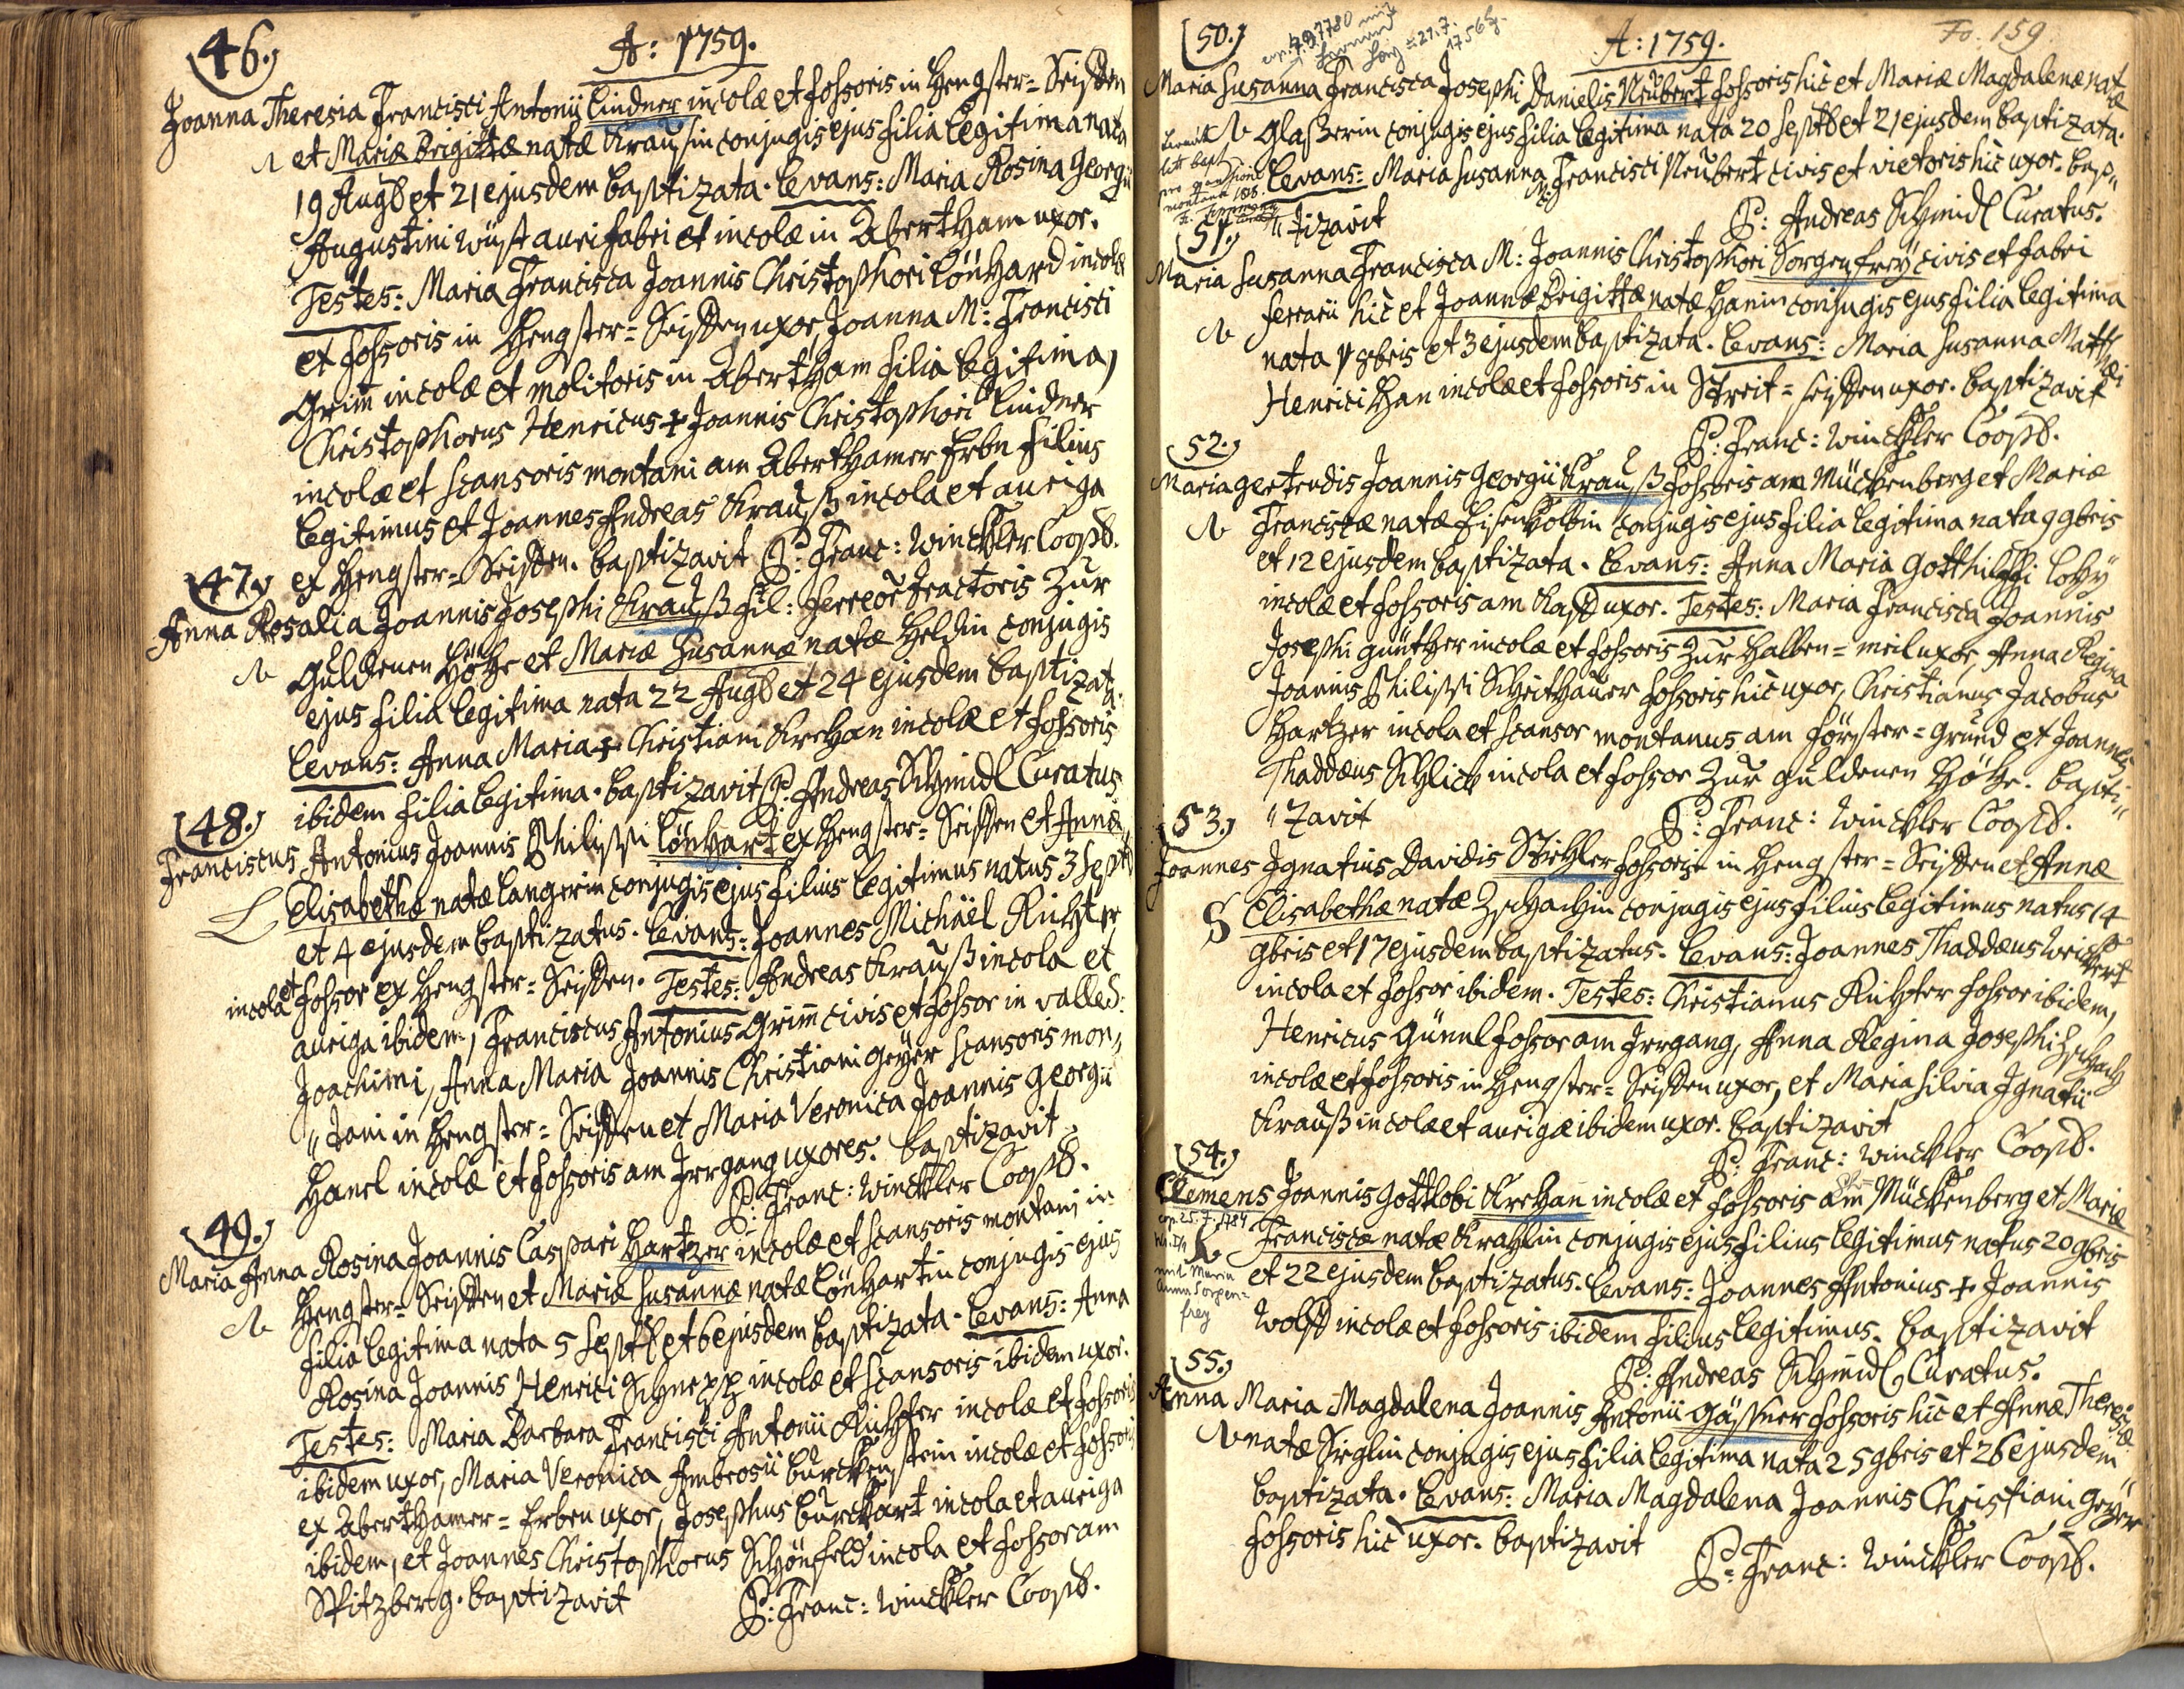 46.)
A: 1759.
Joanna Theresia Francisci Antonii Lindner incolæ et fossoris in Hengster= Seiffen
N et Mariæ Brigittæ natæ Kraußin conjugis ejus filia legitima nata
19 Aug8 et 21 ejusdem baptizata. Levans: Maria Rosina Georgii
Augustini Wüst aurifabri et incolæ in Abertham uxor.
Testes: Maria Francisca Joannis Christophori Lönhard incolæ
et fossoris in Hengster= Seiffen uxor, Joanna M: Francisci
Grim̄ incolæ et molitoris in Abertham filia legitima,
Christophorus Henricus + Joannis Christophori Lindner
incolæ et scansoris montani am Aberthamer Erbn filius
legitimus et Joannes Andreas Krauß incola et auriga
ex Hengster= Seiffen. baptizavit P: Franc: Winckler Coop8.
47.)
Anna Rosalia Joannis Josephi Krauß fil: ferreor̃ tractoris zur
N Guldenen Höhe et Mariæ Susannæ natæ Heldin conjugis
ejus filia legitima nata 22 Aug8 et 24 ejusdem baptizata.
Levans: Anna Maria + Christiani Krehan incolæ et fossoris
ibidem filia legitima. baptizavit P: Andreas Schmidl Curatus
48.)
Franciscus Antonius Joannis Philippi Lönhart ex Hengster= Seiffen et Annæ
L Elisabethæ natæ Langerin conjugis ejus filius legitimus natus 3 Sept8
et 4 ejusdem baptizatus. Levans: Joannes Michäel Richter
incola et fossor ex Hengster= Seiffen. Testes: Andreas Krauß incola et
auriga ibidem, Franciscus Antonius Grim̄ civis et fossor in valle S:
Joachimi, Anna Maria Joannis Christiani Geÿer scansoris mon,,
,,tani in Hengster= Seiffen et Maria Veronica Joannis Georgii
Hanel incolæ et fossoris am Irrgang uxores. baptizavit
P: Franc: Winckler Coop8.
49.)
Maria Anna Rosina Joannis Caspari Hartzer incolæ et scansoris montani in
N Hengster= Seiffen et Mariæ Susannæ natæ Lönhartin conjugis ejus
filia legitima nata 5 Sept8 et 6 ejusdem baptizata. Levans: Anna
Rosina Joannis Henrici Schnepp incolæ et scansoris ibidem uxor.
Testes: Maria Barbara Francisci Antonii Richter incolæ et fossoris
ibidem uxor, Maria Veronica Ambrosii Bürckenstein incolæ et fossoris
ex Aberthamer= Erben uxor, Josephus Burckhart incola et auriga
ibidem, et Joannes Christophorus Schönfeld incola et fossor am
Spitzberg. baptizavit P: Franc: Winckler Coop8.
50.)
A: 1759.
Fo. 159
Maria Susanna Francisca Josephi Danielis Neubert fossoris hic et Mariæ Magdalenæ natæ
N Glaßerin conjugis ejus filia legitima nata 20 Sept8 et 21 ejusdem baptizata.
Levans: Maria Susanna M: Francisci Neubert civis et vietoris hic uxor. bap,,
,,tizavit P: Andreas Schmidl Curatus.
51.)
Maria Susanna Francisca M: Joannis Christophori Sorgenfreÿ civis et fabri
N ferrarii hic et Joannæ Brigittæ natæ Hanin conjugis ejus filia legitima
nata 1 8bris et 3 ejusdem baptizata. Levans: Maria Susanna Matthæi
Henrici Han incolæ et fossoris in Streit= Seiffen uxor. baptizavit
P: Franc: Winckler Coop8.
52.)
Maria Gertrudis Joannis Georgii Krauß fossoris am Mückenberg et Mariæ
N Franciscæ natæ Eisenkolbin conjugis ejus filia legitima nata 9 9bris
et 12 ejusdem baptizata. Levans: Anna Maria Gotthilffi Lohÿ
incolæ et fossoris am Kaff uxor. Testes: Maria Francisca Joannis
Josephi Günther incolæ et fossoris zur Halben= meil uxor, Anna Regina
Joannis Philippi Scheithauer fossoris hic uxor, Christianus Jacobus
Hartzer incola et scansor montanus am Förster= Grund et Joannes
Thaddæus Schlick incola et fossor zur Guldenen Höhe. bapti,,
,,zavit P: Franc: Winckler Coop8.
53.)
Joannes Ignatius Davidis Stiehler fossoris in Hengster= Seiffen et Annæ
S Elisabethæ natæ Zschachin conjugis ejus filius legitimus natus 14
9bris et 17 ejusdem baptizatus. Levans: Joannes Thaddæus Weickert
incola et fossor ibidem. Testes: Christianus Richter fossor ibidem,
Henricus Günnl fossor am Irrgang, Anna Regina Josephi Zschach
incolæ et fossoris in Hengster= Seiffen uxor, et Maria Silvia Ignatii
Krauß incolæ et aurigæ ibidem uxor. baptizavit
P: Franc: Winckler Coop8.
54.)
Clemens Joannis Gottlobi Krehan incolæ et fossoris am Mückenberg et Mariæ
cop. 25. 7. 1784
Franciscæ natæ Krahlin conjugis ejus filius legitimus natus 20 9bris
mit Maria
Anna Sorgen=
frey
et 22 ejusdem baptizatus. Levans: Joannes Antonius + Joannis
Wolff incolæ et fossoris ibidem filius legitimus. baptizavit
P: Andreas Schmidl Curatus.
55.)
Anna Maria Magdalena Joannis Antonii Gäßner fossoris hic et Annæ Theresiæ
N natæ Sieglin conjugis ejus filia legitima nata 25 9bris et 26 ejusdem
baptizata. Levans: Maria Magdalena Joannis Christiani Geÿer
fossoris hic uxor. baptizavit
P: Franc: Winckler Coop8.